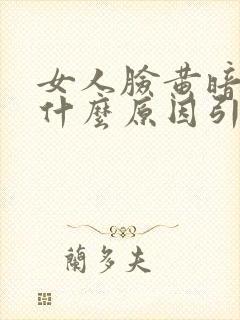 女人臉黃暗
什麼原因引
蘭多夫